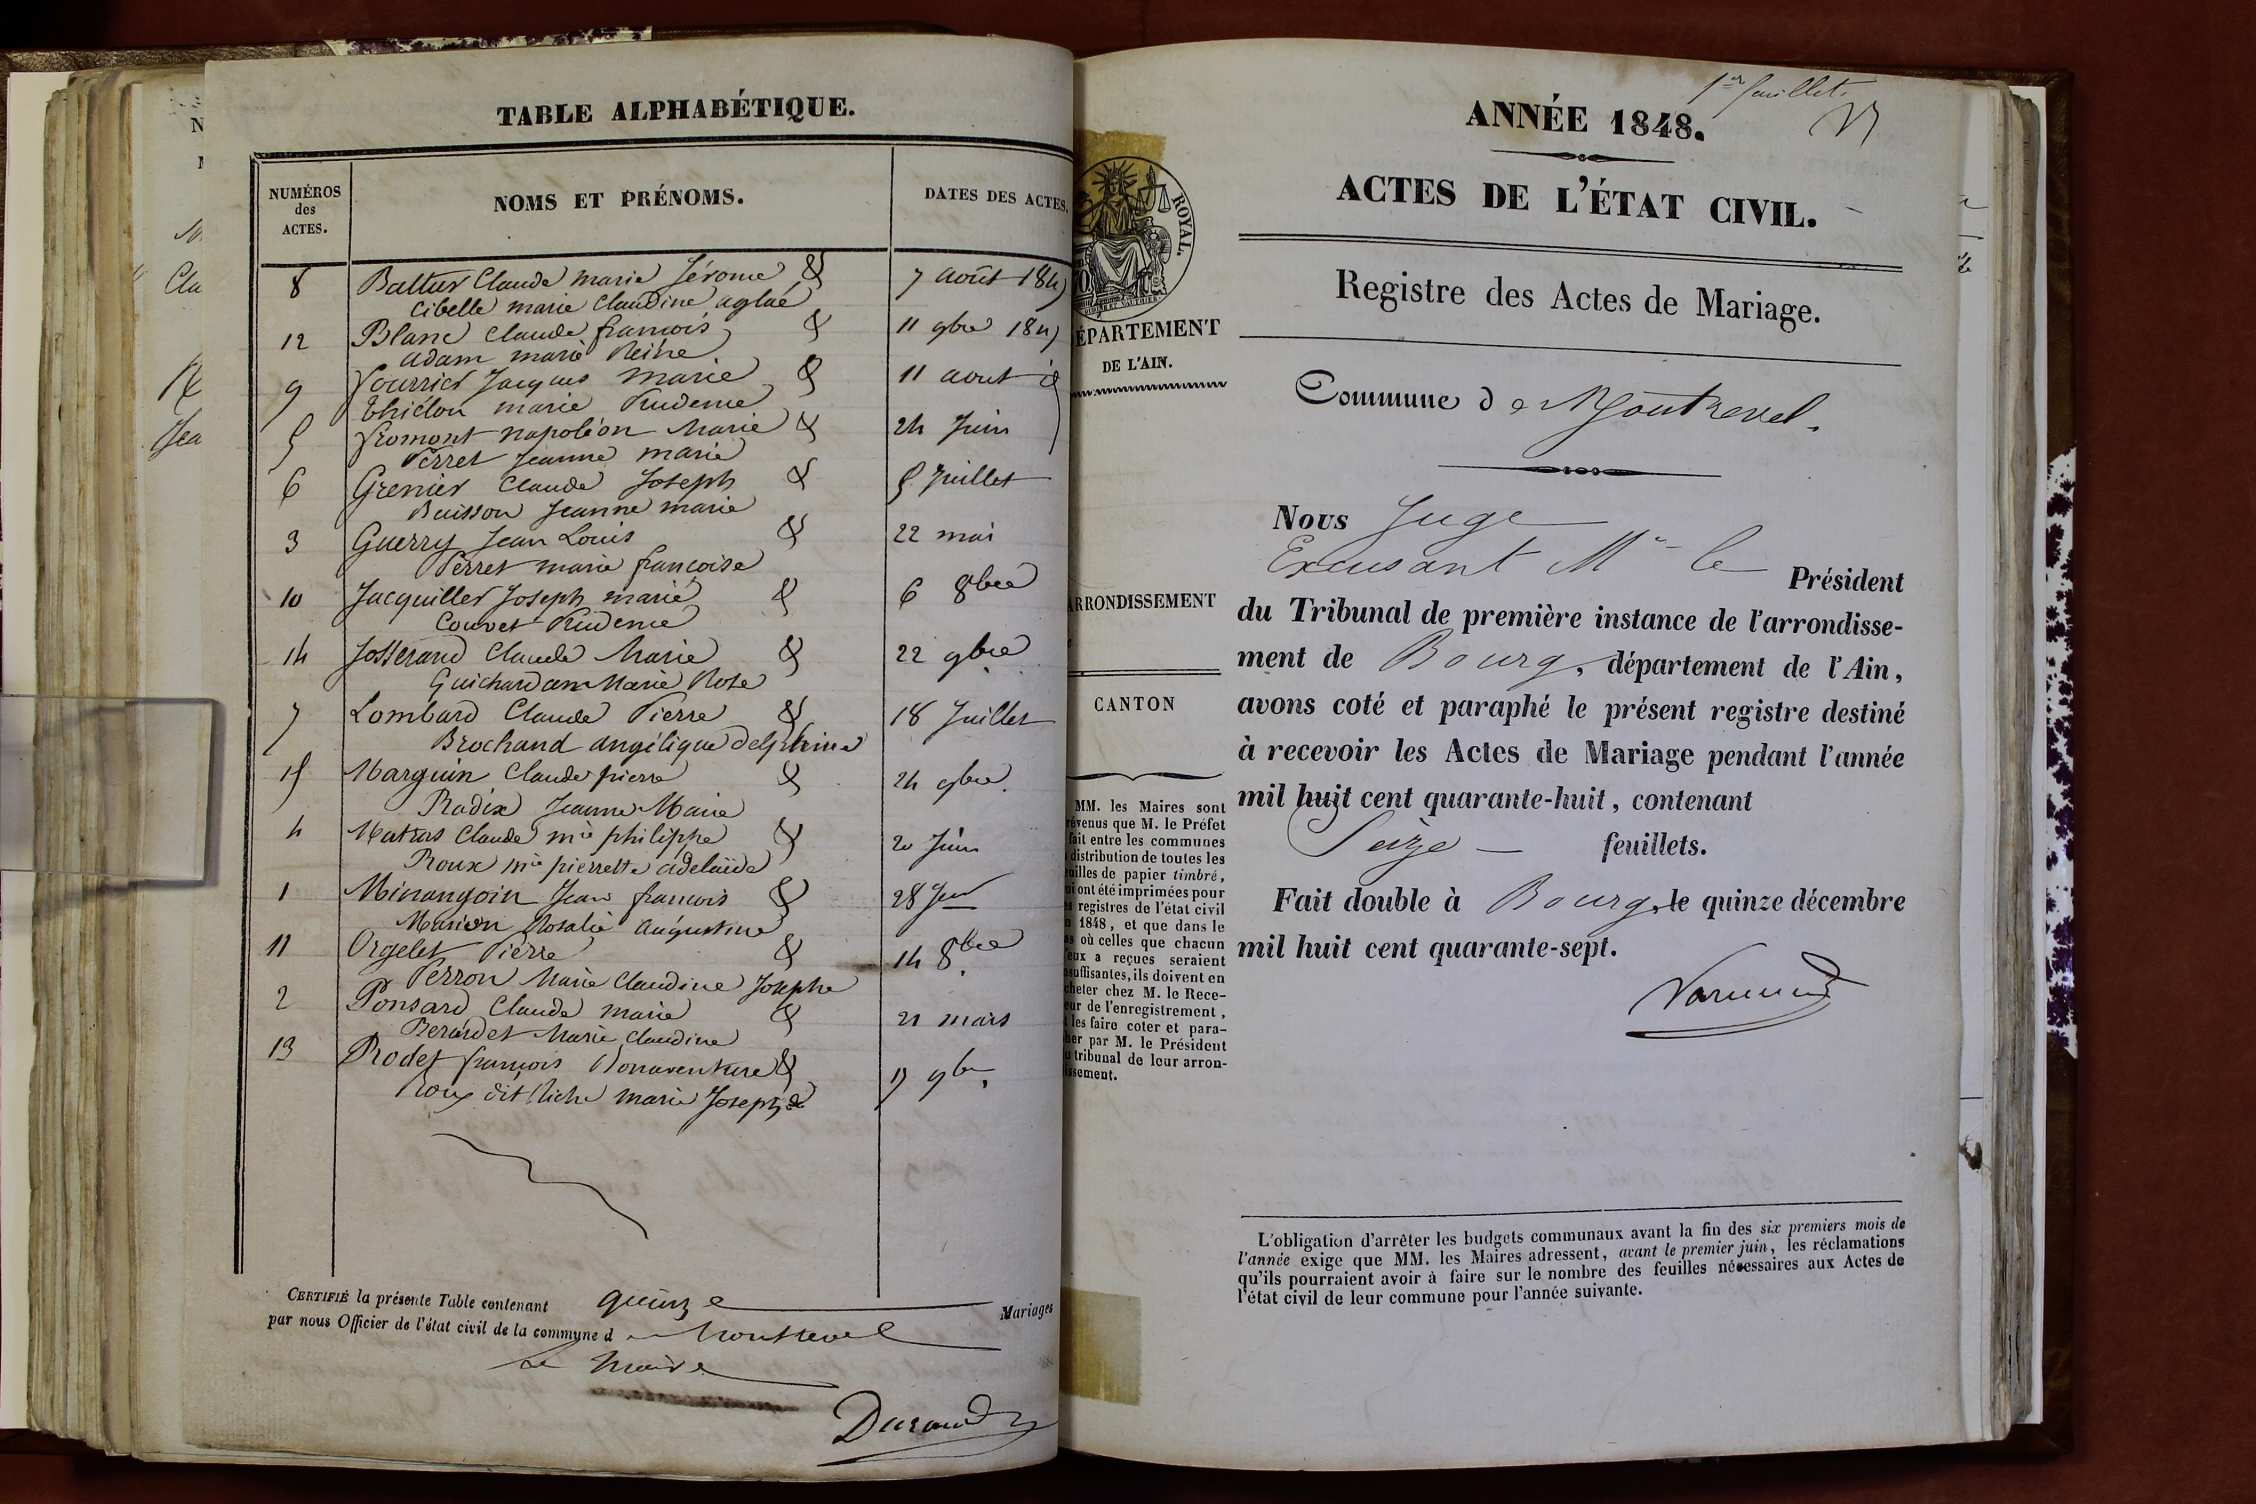 TABLE ALPHABÉTIQUE.
NUMÉROS
des
ACTES.
NOMS ET PRÉNOMS.
DATES DES ACTES.
8 Claude marie Jérome & 7 août 184
Cibelle marie Claudine aglaé
12 Blanc Claude françois & 11 9bre 184
adam marie Reine
9 fourrier Jacques marie & 11 aout
marie Prudence
5 fromont napoléon Marie & 24 Juin
Perret Jeanne marie
6 Grenier Claude Joseph & 5 Juillet
Buisson Jeanne marie
3 Guerry Jean Louis & 22 mai
Perret marie françoise
10 Jacquiller Joseph marie & 6 8bre
Couvet Prudence
14 Josserand Claude Marie & 22 9bre
Guichardan Marie Rose
7 Lombard Claude Pierre & 18 Juillet
Brochand angélique delphine
15 Marguin Claude pierre & 24 9bre.
Radix Jeanne Marie
4 Claude mie philippe & 20 Juin
Roux mie pierrette adelaïde
1 Minangoin Jean françois & 28 Jer
Marion Rosalie augustine
11 Orgelet Pierre & 14 8bre
Perron Marie Claudine Josephe
2 Ponsard Claude marie & 21 mars
Berardet Marie Claudine
13 Rodet françois Bonaventure & 17 9bre
Roux dit Riche marie Josephe
CERTIFIÉ la présente Table contenant quinze Mariages
par nous Officier de l'état civil de la commune de Montrevel
Le Maire
Durand
1er feuillet.
ANNÉE 1848.
ACTES DE L'ÉTAT CIVIL.
Registre des Actes de Mariage.
ROYAL.
ÉPARTEMENT
DE L'AIN.
ARRONDISSEMENT
CANTON
MM. les Maires sont
révenus que M. le Préfet
fait entre les communes
distribution de toutes les
uilles de papier timbré,
ui ont été imprimées pour
es registres de l'état civil
n 1848, et que dans le
as où celles que chacun
'eux a reçues seraient
nsuffisantes, ils doivent en
cheter chez M. le Rece-
eur de l'enregistrement,
t les faire coter et para-
her par M. le Président
u tribunal de leur arron-
issement.
Commune de Montrevel.
Nous Juge
Excusant Mr le Président
du Tribunal de première instance de l'arrondisse-
ment de Bourg, département de l'Ain,
avons coté et paraphé le présent registre destiné
à recevoir les Actes de Mariage pendant l'année
mil huit cent quarante-huit, contenant
Seize feuillets.
Fait double à Bourg, le quinze décembre
mil huit cent quarante-sept.
L'obligation d'arrêter les budgets communaux avant la fin des six premiers mois de
l'année exige que MM. les Maires adressent, avant le premier juin, les réclamations
qu'ils pourraient avoir à faire sur le nombre des feuilles nécessaires aux Actes de
l'état civil de leur commune pour l'année suivante.